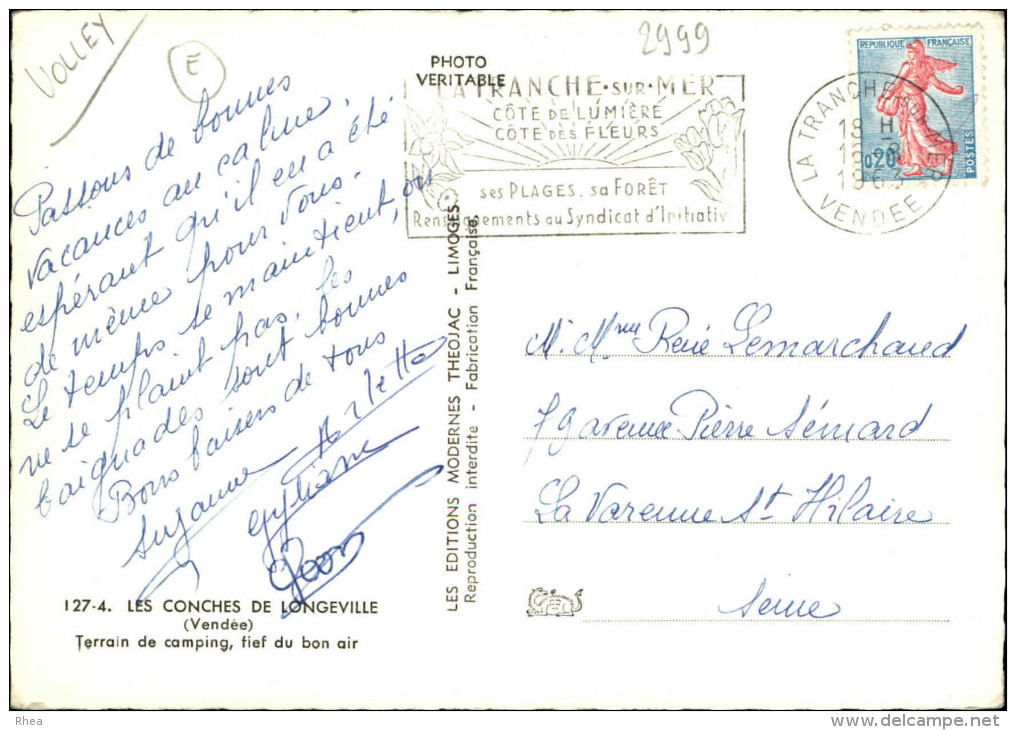 VOLLEY
E
2999
PHOTO
VERITABLE
LA TRANCHE • SUR • MER
CÔTE DE LUMIÈRE
CÔTE DES FLEURS
ses PLAGES. sa FORÊT
Renseignements au Syndicat d'Initiative
REPUBLIQUE FRANÇAISE
0,20
POSTES
LA TRANCHE SUR MER
18 H
1963
VENDEE
Passons de bonnes
vacances au calme,
espérant qu'il en a été
de même pour vous.
Le temps se maintient, on
ne se plaint pas, les
baignades sont bonnes
Bons baisers de tous
Suzanne Arlette
M. Mme René Lemarchand
79 avenue Pierre Sémard
La Varenne St Hilaire
Seine
LES EDITIONS MODERNES THEOJAC - LIMOGES
Reproduction interdite - Fabrication Française.
127-4. LES CONCHES DE LONGEVILLE
(Vendée)
Terrain de camping, fief du bon air
Rhea
delcampe.net